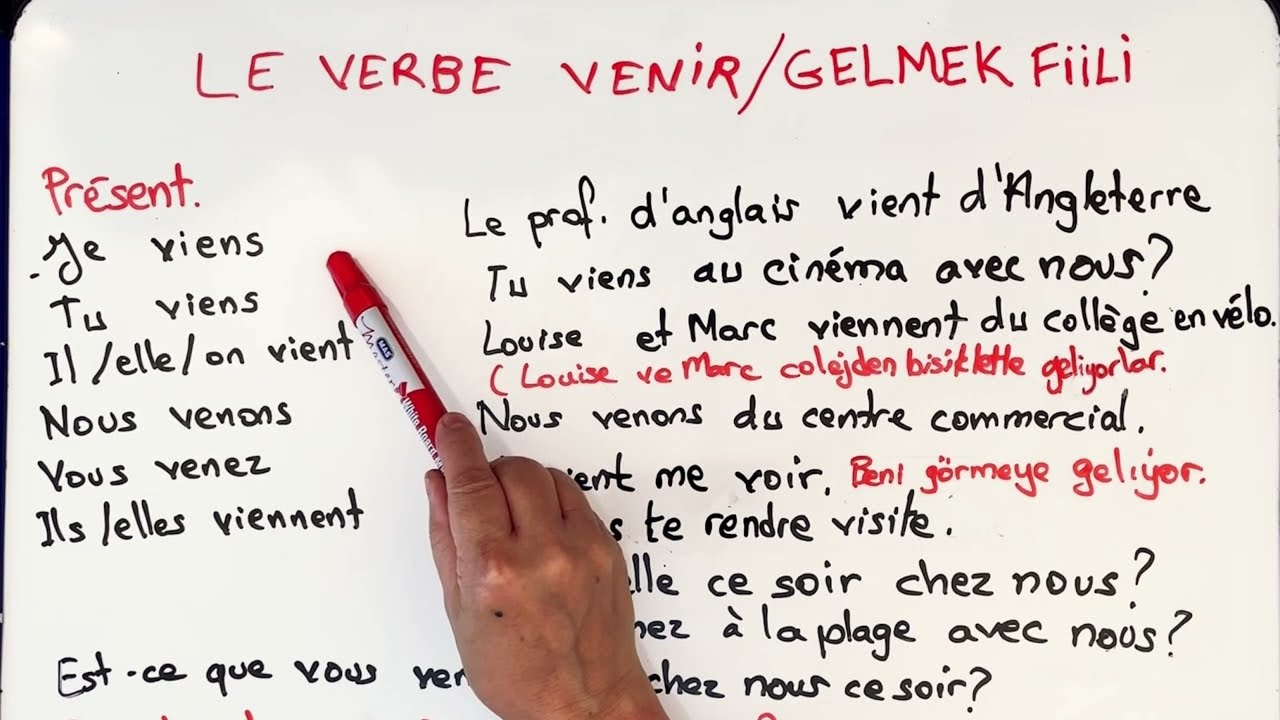 LE VERBE VENİR/GELMEK FiiLi
Présent.
Je viens
Tu viens
Il/elle/on vient
Nous venons
Vous venez
Ils/elles viennent
Le prof. d'anglais vient d'Angleterre
Tu viens au cinéma avec nous?
Louise et Marc viennent du collège en vélo.
(Louise ve Marc colejden bisikletle geliyorlar.
Nous venons du centre commercial.
me voir. Beni görmeye geliyor.
te rendre visite.
ce soir chez nous?
à la plage avec nous?
Est-ce que vous chez nous ce soir?
White Board